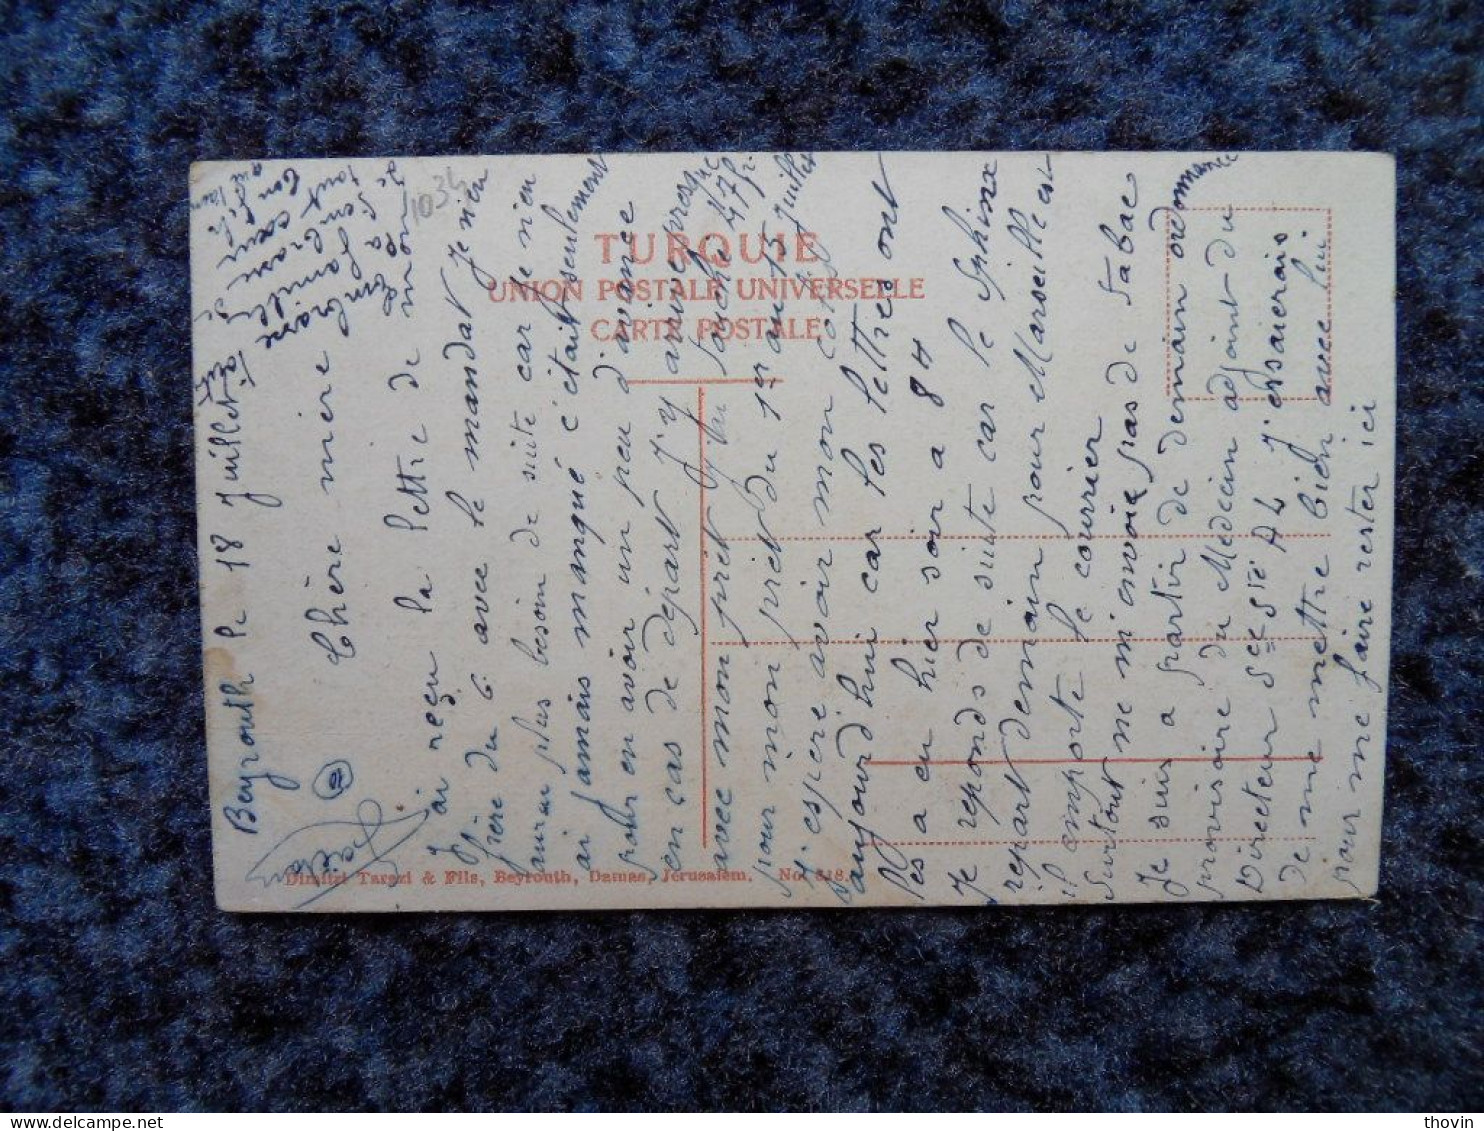 TURQUIE
UNION POSTALE UNIVERSELLE
CARTE POSTALE
Dimitri Tarazi & Fils, Beyrouth, Damas, Jérusalem. No. 318.
1034
Beyrouth le 18 Juillet
Chère mère
J'ai reçu la lettre de mon
frère du 6 avec le mandat je n'en
aurai plus besoin de suite car je n'en
ai jamais manqué c'était seulement
pour en avoir un peu d'avance
en cas de départ J'y arrive presque
avec mon prêt j'ai touché 47f
pour mon prêt du 1er au 15 juillet
J'espère avoir mon colis
aujourd'hui car les lettres ont
les a eu hier soir a 8 H
Je reponds de suite car le Sphinx
repart demain pour Marseille et
il emporte le courrier
Surtout ne m'envoie pas de tabac
Je suis a partir de demain ordonnance
provisoire du Médecin adjoint du
Directeur Sce Sté A L J'essaierais
de me mettre bien avec lui.
pour me faire rester ici
Je t'embrasse
la famille
bon cœur
thovin
delcampe.net